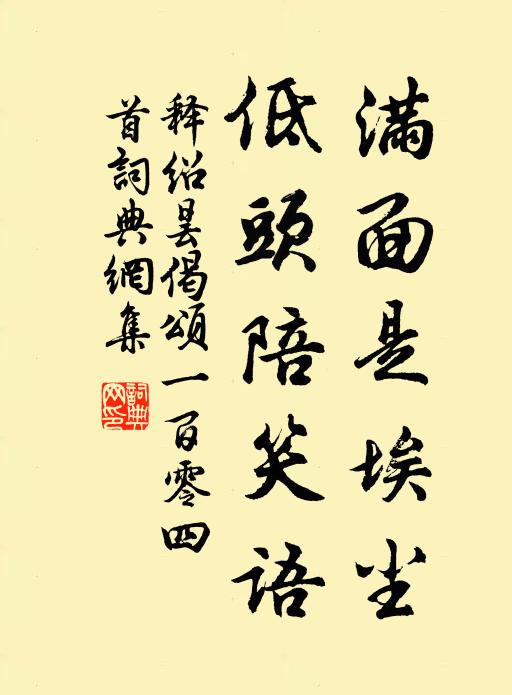 滿面是埃尘
低頭陪笑語
释绍昙偈頌一百零四
首詞典網集
詞典网印